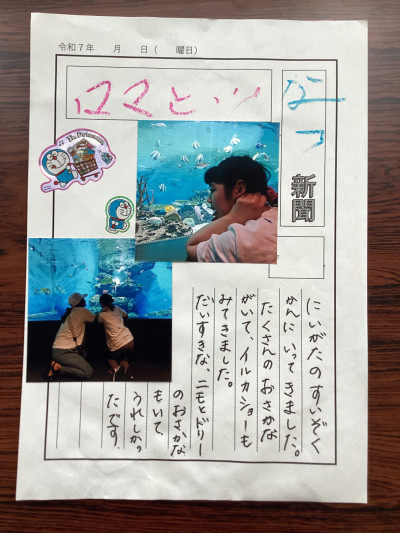 令和7年　月　日（　曜日）
なつ
新聞
ママと
にいがたのすいぞく
かんにいってきました。
たくさんのおさかな
がいて、イルカショーも
みてきました。
だいすきな、ニモとドリー
のおさかな
もいて、
うれしかっ
たです。